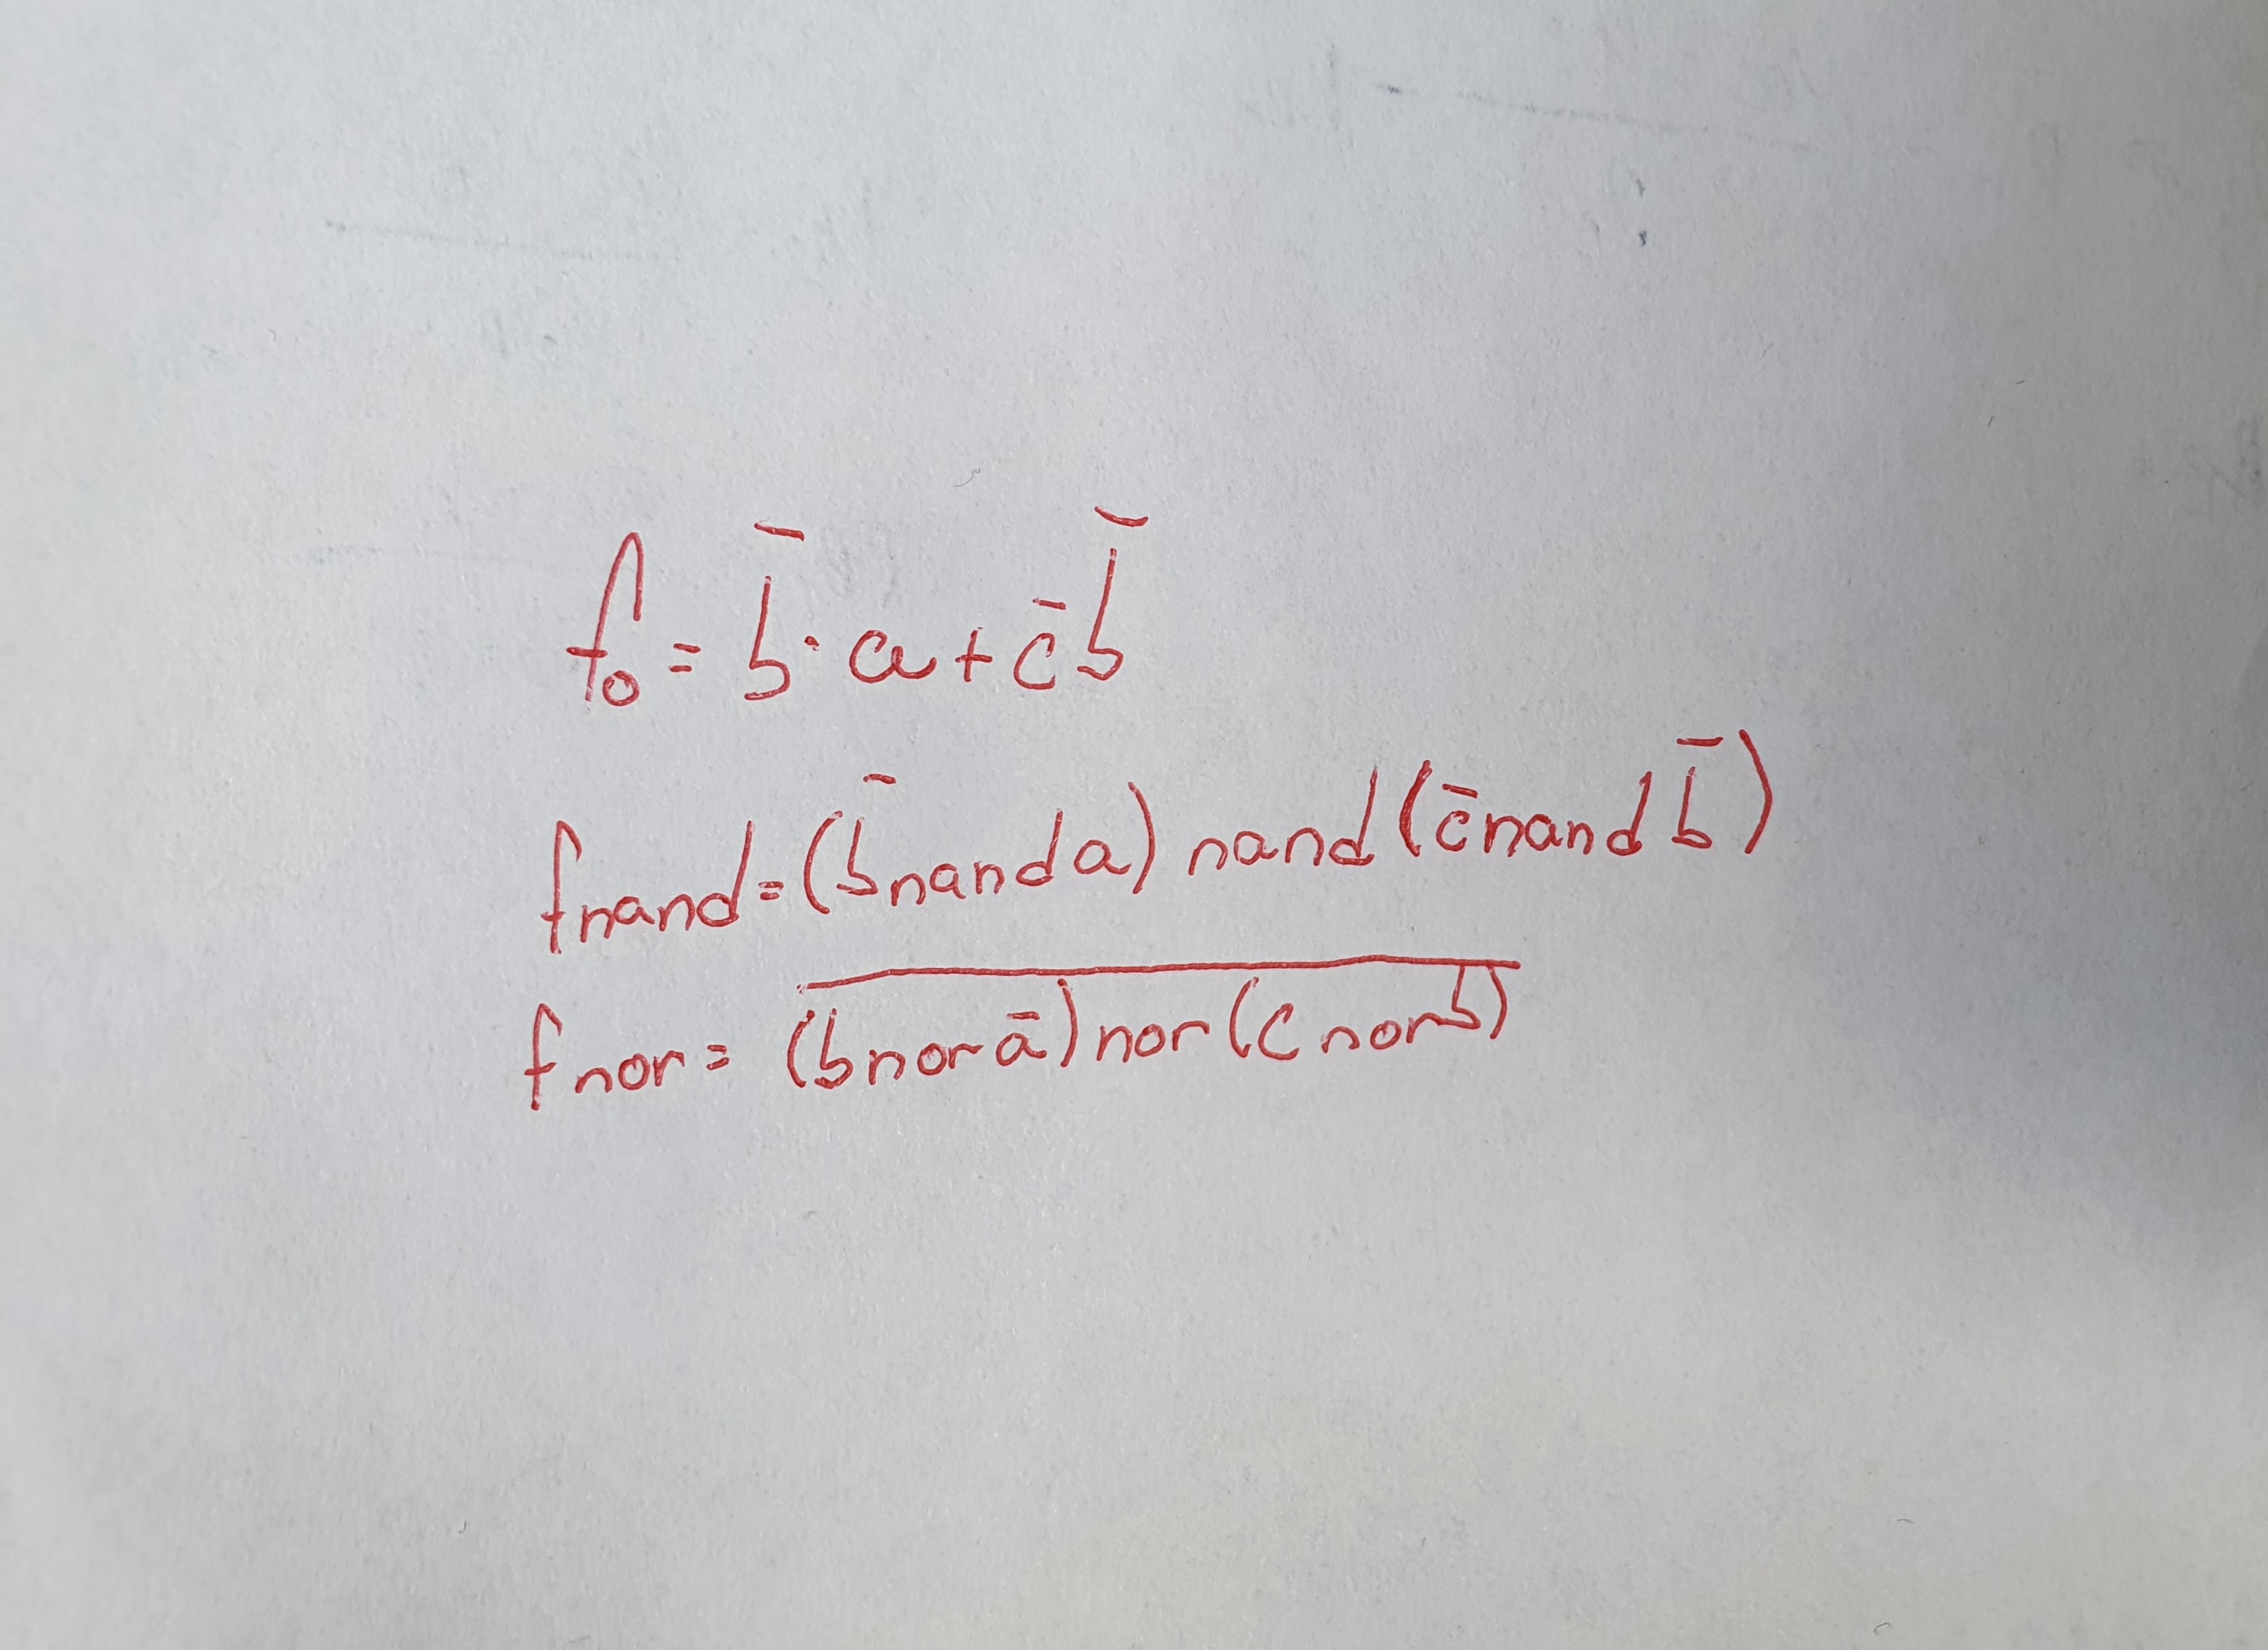 f₀ = b̄·a + c̄b̄
fnand = (b̄ nand a) nand (c̄ nand b̄)
fnor = \overline{(b nor ā) nor (c nor b)}